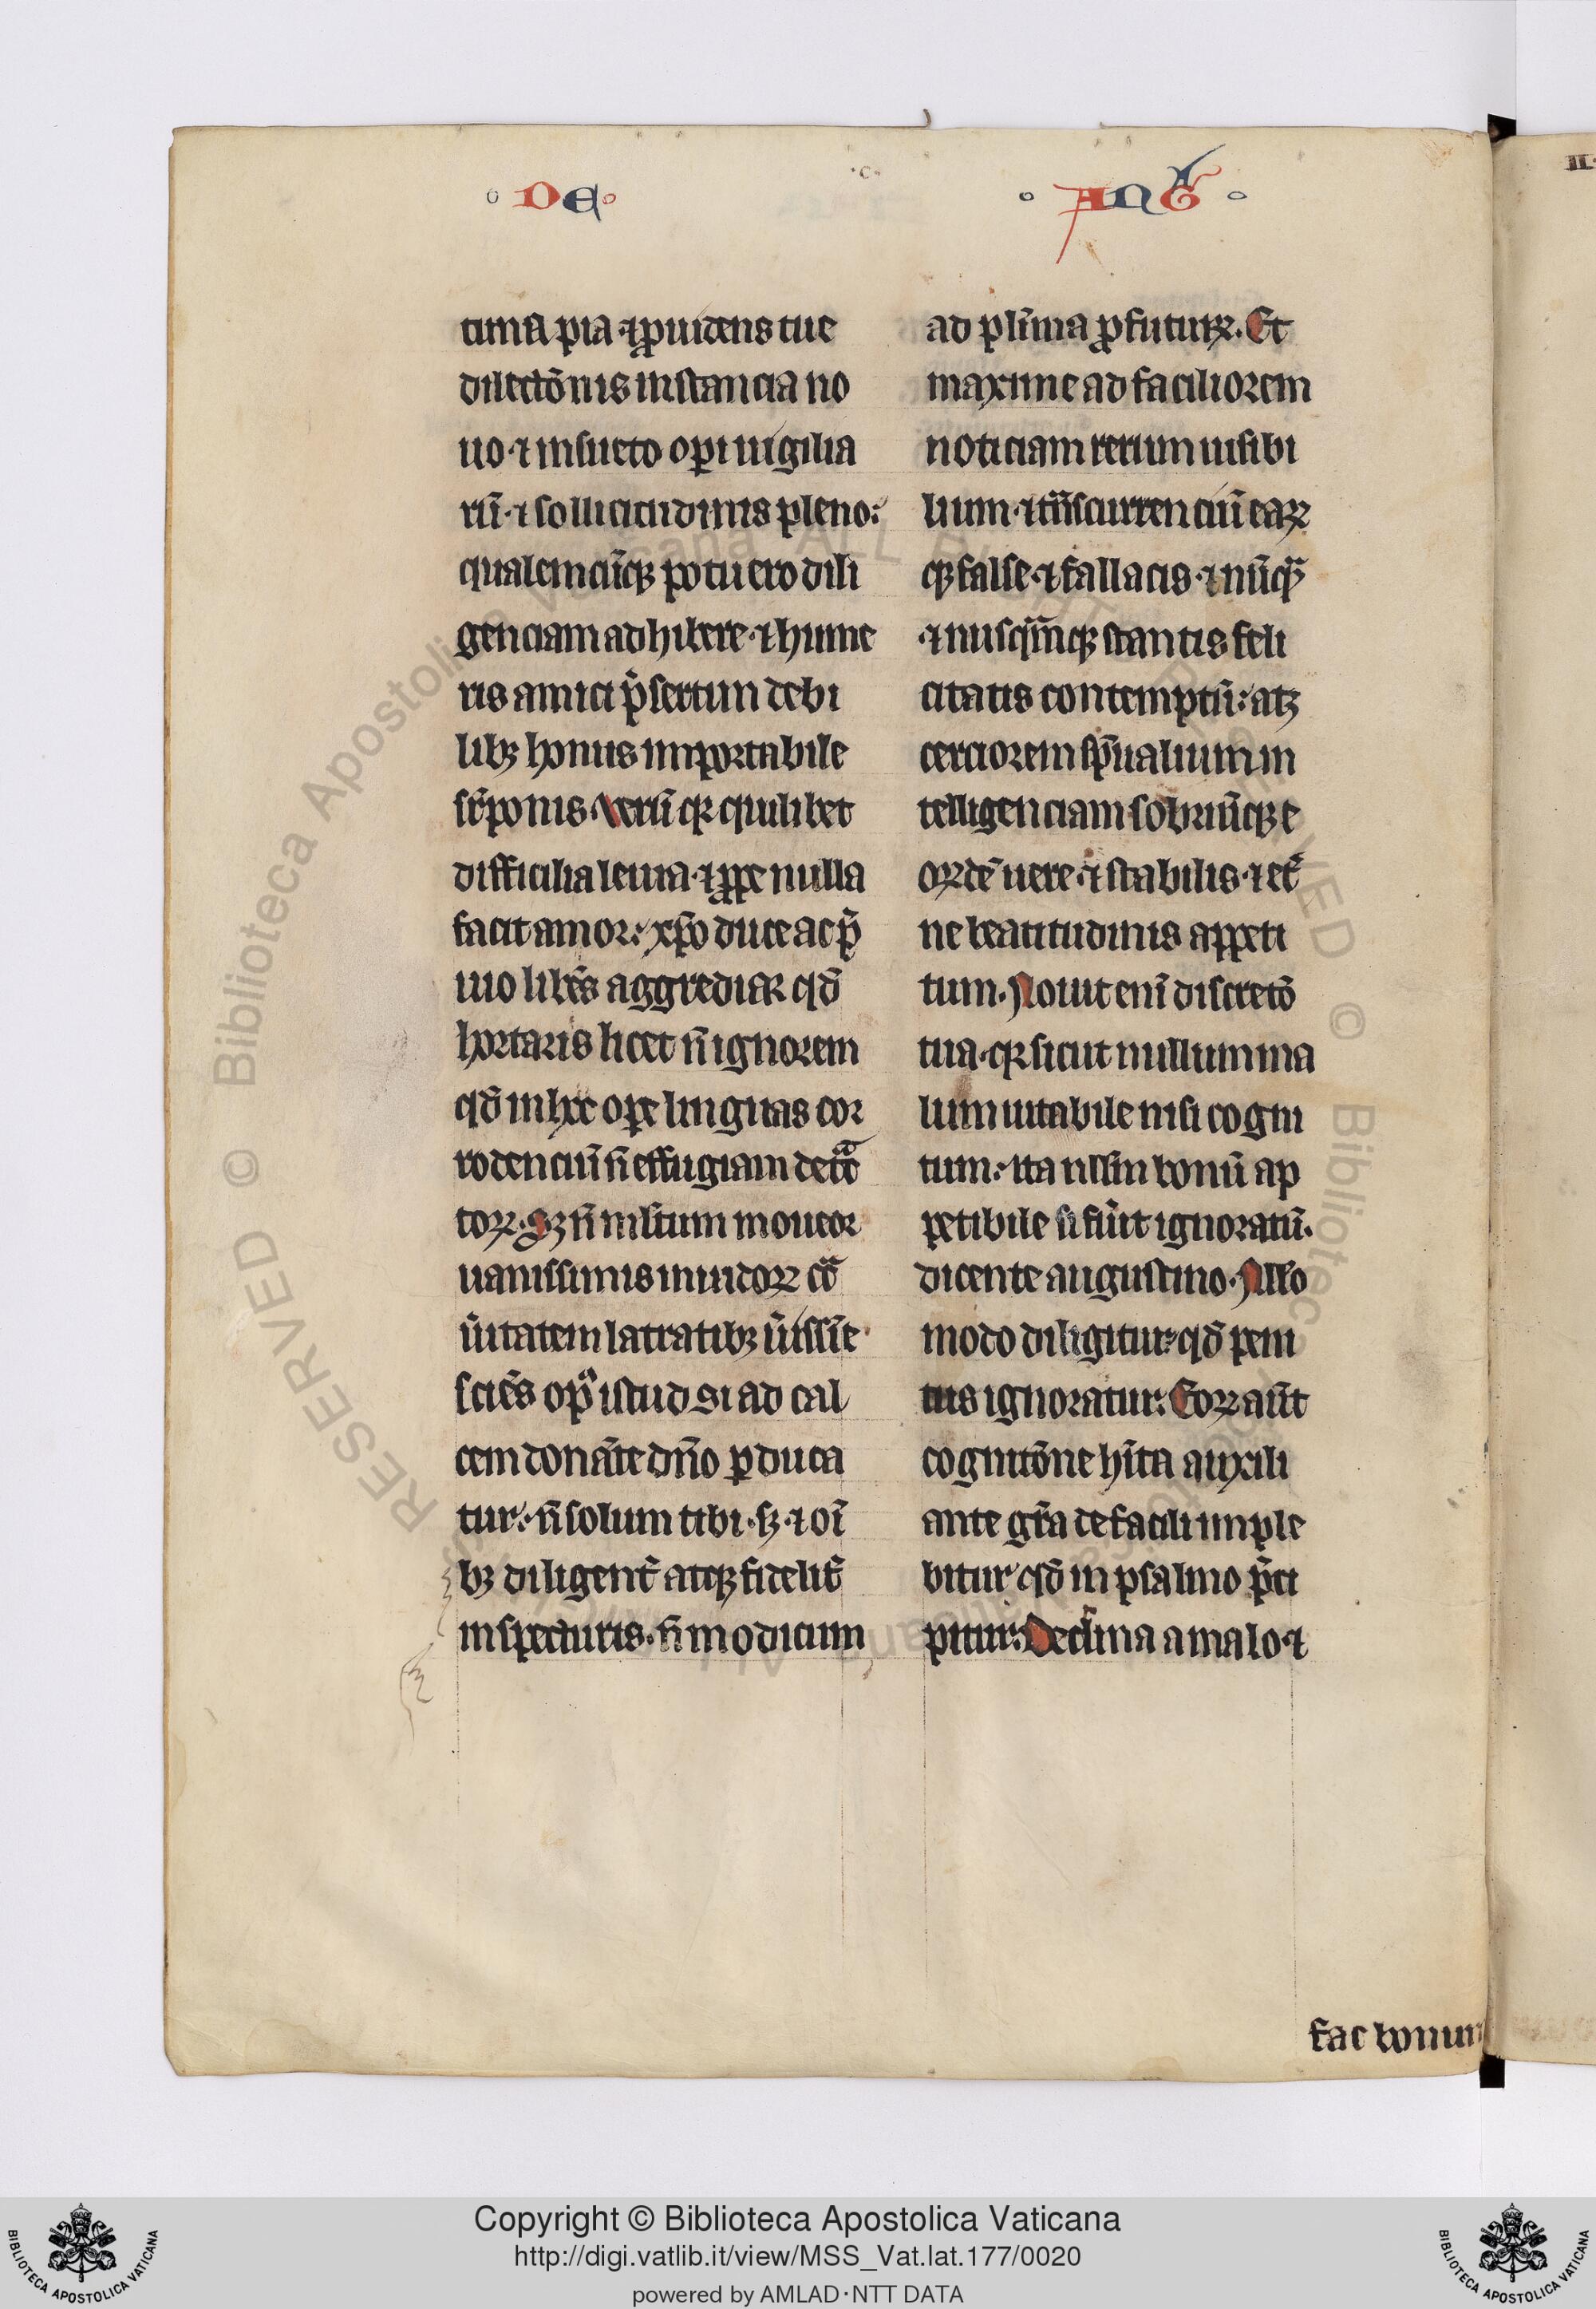 DE
ANᵃE
tima pia ⁊ ꝓuidens tue
dilectōnis instancia no
uo ⁊ insueto oꝑi uigilia
rū ⁊ sollicitudinis pleno:
qualemcūꝗꝫ potuero dili
genciam adhibere ⁊ hume
ris amici p̄sertim debi
libꝫ honus importabile
ponis. Verū quilibet
difficilia leuia ⁊ ꝓpe nulla
facit amor: xp̄o duce ac p̄
uio libēs aggrediar qd̄
hortaris licet n̄ ignorem
qd̄ in hoc oꝑe linguas cor
rodenciū n̄ effugiam
toꝝ. Sꝫ n̄ moueor
uanissimis inuidoꝝ
ūitatem latratibꝫ
sciēs istud si ad cal
cem donāte dn̄o ꝑduca
tur: n̄ solum tibi sꝫ ⁊ oī
bꝫ diligent̄ atqꝫ fidelit̄
inspecturis. n̄ modicum
ad pl̄ima ꝓfutuꝝ. Et
maxime ad faciliorem
noticiam rerum uisibi
lium ⁊ t̄nscurrenciū eaꝝ
qꝫ false ⁊ fallacis ⁊ nūꝗ̄
⁊ nusqm̄qꝫ stantis feli
citatis contemptū: atꝫ
cerciorem sp̄ualium in
telligenciam sobriūqꝫ e
oꝝdē uere ⁊ stabilis ⁊ et̄
ne beatitudinis appeti
tum. Nouit enī discretō
tua sicut nullum ma
lum uitabile nisi cogni
tum: ita nllm̄ bonū ap
petibile si fūit ignoratū.
dicente augustino. Nllo
modo diligitur qd̄ peni
tus ignoratur: Eoꝝ aūt
cognitōne hīta auxili
ante gr̄a de facili imple
bitur qd̄ in psalmo p̄ci
pitur: Declina a malo ⁊
fac bonum
Copyright © Biblioteca Apostolica Vaticana
http://digi.vatlib.it/view/MSS_Vat.lat.177/0020
powered by AMLAD·NTT DATA
BIBLIOTECA APOSTOLICA VATICANA
BIBLIOTECA APOSTOLICA VATICANA